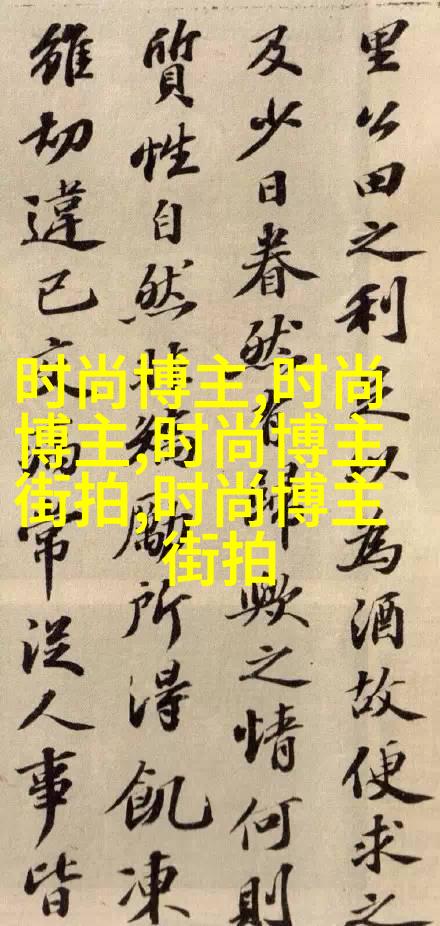 里公田之利足以為酒故便求之
及少日眷然有歸歟之情何則
質性自然非矯勵所得飢凍
雖切違已交病常從人事皆
时尚博主,时尚
博主,时尚博主
街拍,时尚博主
街拍